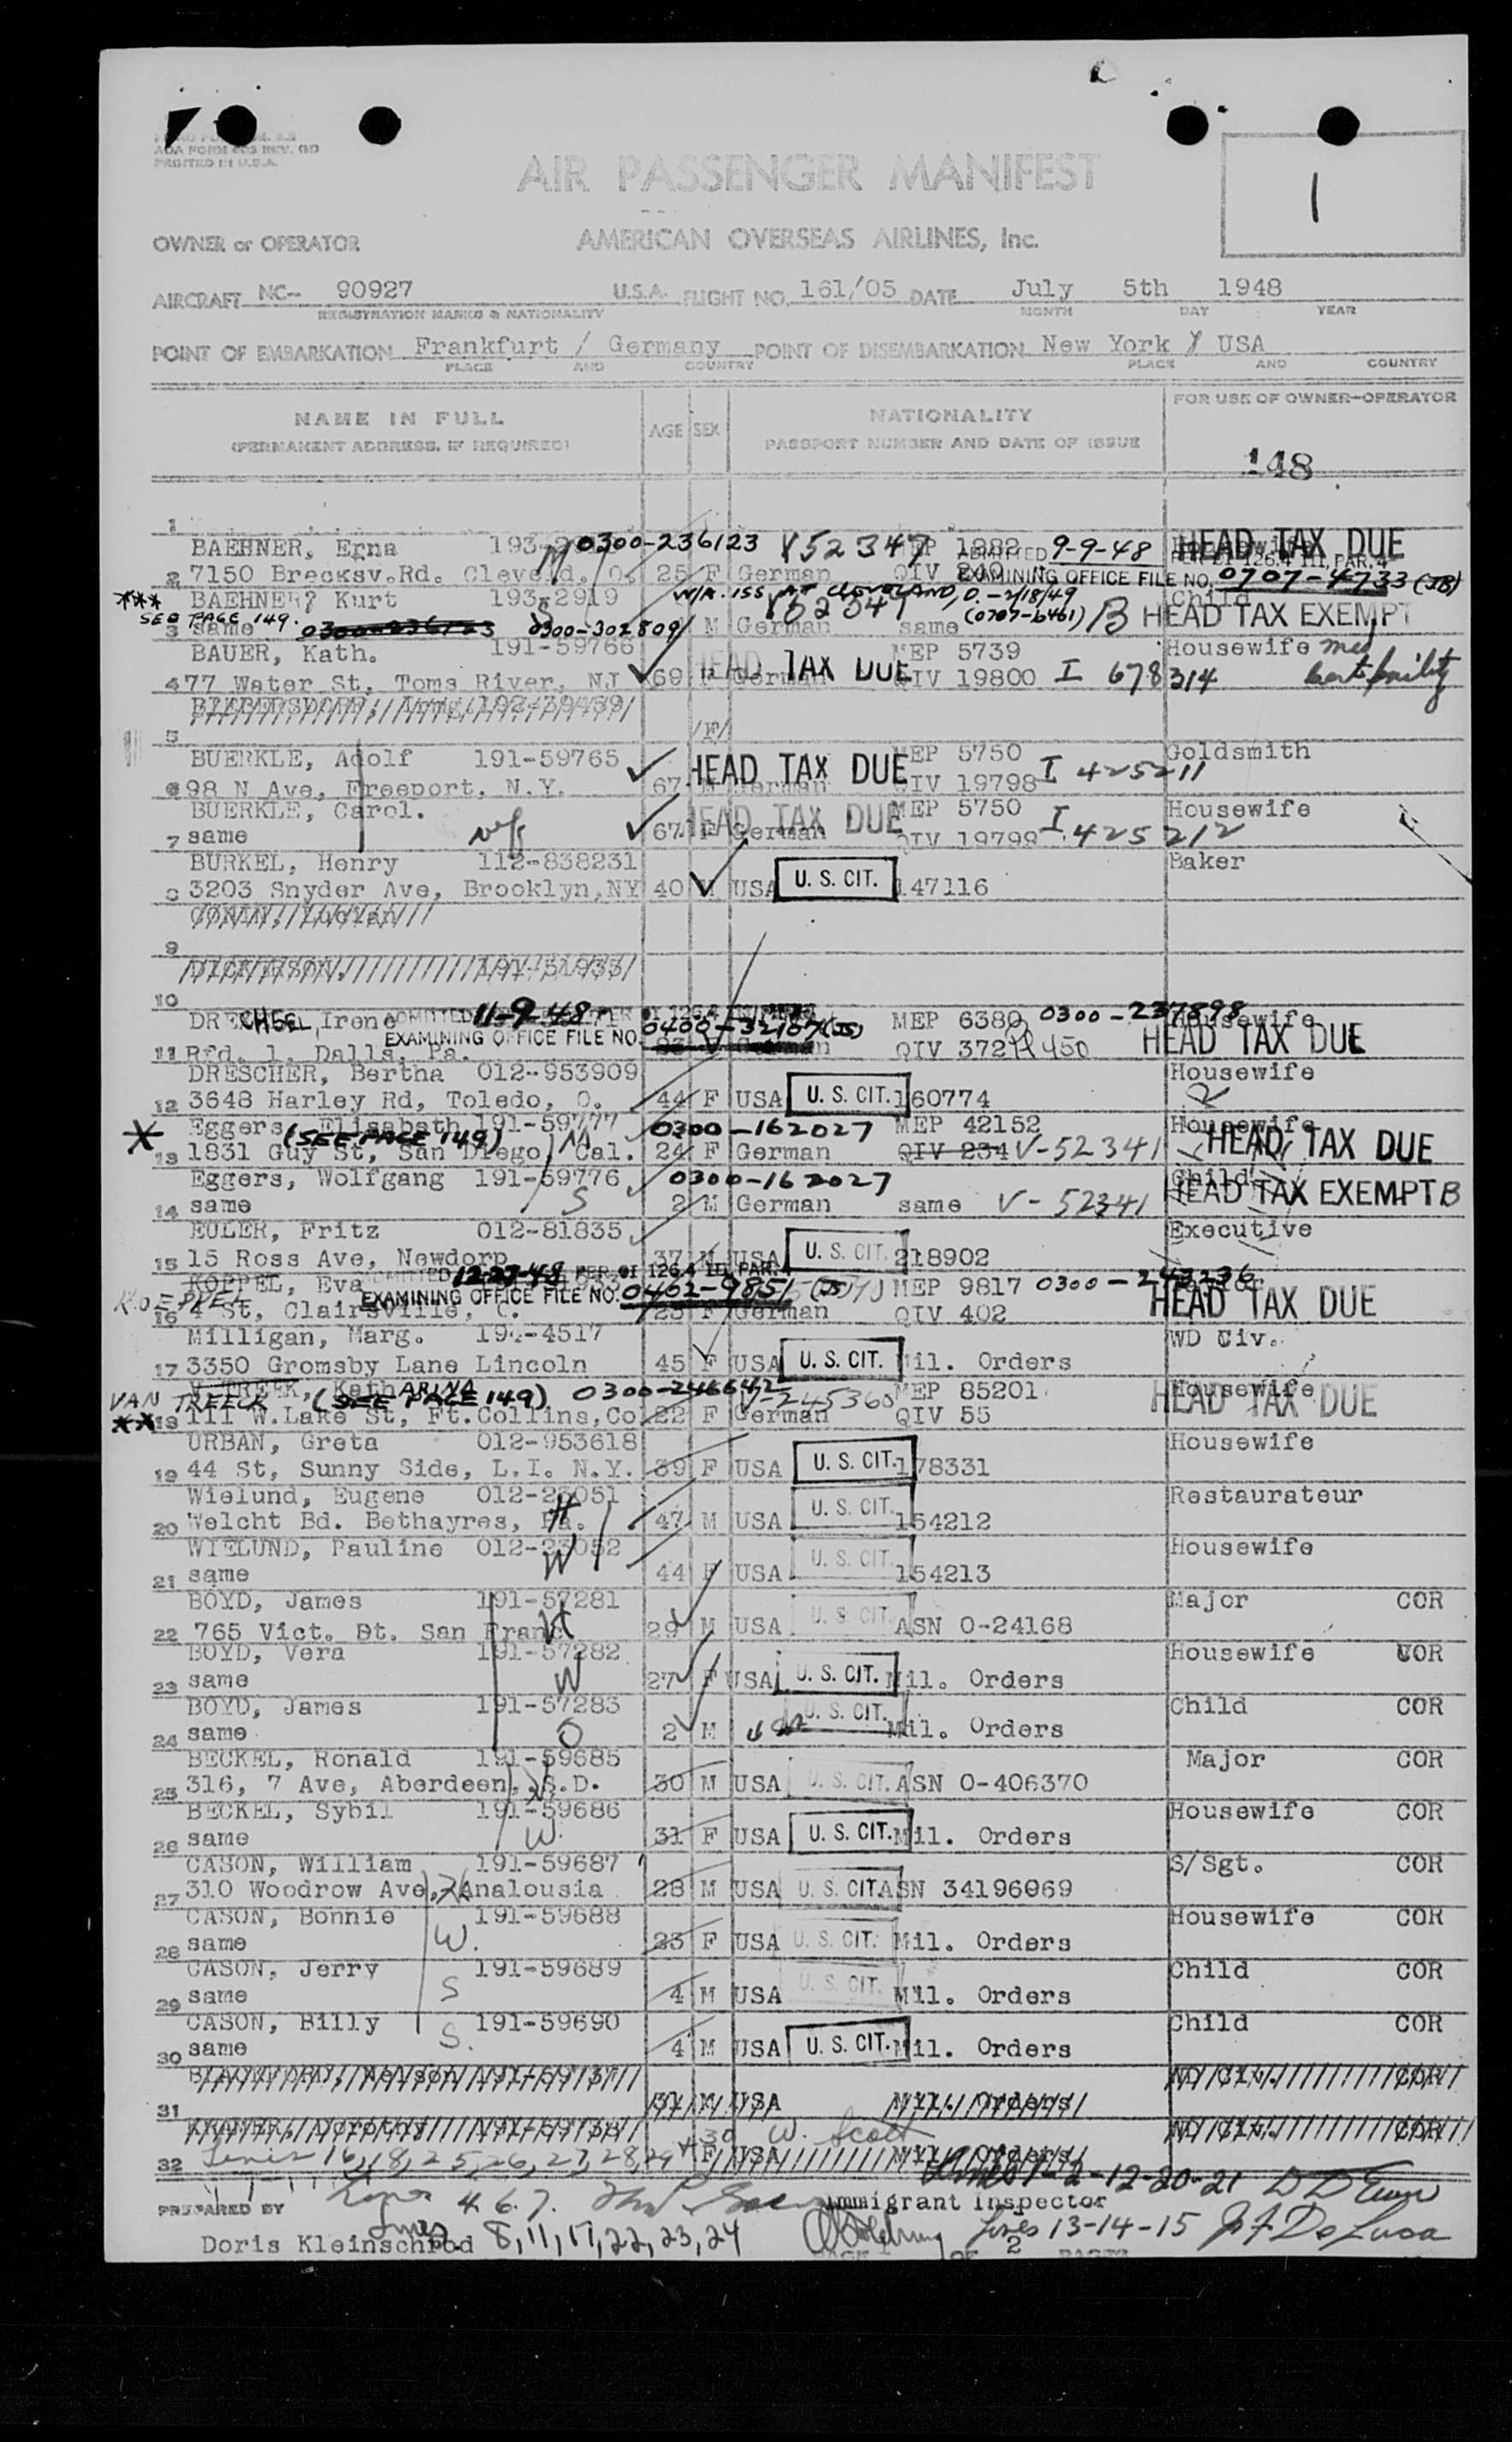 AOA FORM
PRINTED IN U.S.A.
AIR PASSENGER MANIFEST
1
OWNER or OPERATOR AMERICAN OVERSEAS AIRLINES, Inc.
AIRCRAFT NC- 90927 U.S.A. FLIGHT NO. 161/05 DATE July 5th 1948
REGISTRATION MARKS & NATIONALITY MONTH DAY YEAR
POINT OF EMBARKATION Frankfurt / Germany POINT OF DISEMBARKATION New York / USA
PLACE AND COUNTRY PLACE AND COUNTRY
NAME IN FULL AGE SEX NATIONALITY FOR USE OF OWNER-OPERATOR
(PERMANENT ADDRESS, IF REQUIRED) PASSPORT NUMBER AND DATE OF ISSUE
148
1
BAEHNER, Erna 0300-236123 V52347 ADMITTED 9-9-48 HEAD TAX DUE
2 7150 Brecksv.Rd. Cleveld. O. 25 F German QIV 240 EXAMINING OFFICE FILE NO. 0707-4733 (JB)
*** BAEHNER, Kurt 193-2919 W/A. ISS AT CLEVELAND, O. - 2/18/49 Child
SEE PAGE 149.
3 same 0300-236123 0300-302809 M German same (0707-6461) B HEAD TAX EXEMPT
BAUER, Kath. 191-59766 HEAD TAX DUE MEP 5739 Housewife med
4 77 Water St, Toms River, NJ 69 F German QIV 19800 I 678314
5 /F/
BUERKLE, Adolf 191-59765 HEAD TAX DUE MEP 5750 Goldsmith
6 98 N Ave, Freeport, N.Y. 67 M German QIV 19798 I 425211
BUERKLE, Carol. HEAD TAX DUE MEP 5750 Housewife
7 same 67 F German QIV 19799 I 425212
BURKEL, Henry 112-838231 Baker
8 3203 Snyder Ave, Brooklyn,NY 40 M USA U. S. CIT. 147116
9
191-51933
10
DRECHSEL, Irene ADMITTED 11-9-48 PER OI 126.4 MEP 6380 0300-237898 Housewife
EXAMINING OFFICE FILE NO. 0400-32107 (JS)
11 Rfd. 1. Dalls, Pa. German QIV 372 HEAD TAX DUE
DRESCHER, Bertha 012-953909 Housewife
12 3648 Harley Rd, Toledo, O. 44 F USA U. S. CIT. 160774
Eggers, Elisabeth 191-59777 0300-162027 MEP 42152 Housewife
* (SEE PAGE 149)
13 1831 Guy St, San Diego, Cal. 24 F German QIV 234 V-52341 HEAD TAX DUE
Eggers, Wolfgang 191-59776 0300-162027 Child
14 same S 2 M German same V-52341 HEAD TAX EXEMPT B
EULER, Fritz 012-81835 Executive
15 15 Ross Ave, Newdorp 37 M USA U. S. CIT. 218902
KOPPEL, Eva ADMITTED 12-27-48 PER OI 126.4 III, PAR. 4 MEP 9817 0300-243236
EXAMINING OFFICE FILE NO. 0402-9851 (JS)
16 4 St, Clairsville, O. 23 F German QIV 402 HEAD TAX DUE
Milligan, Marg. WD Civ.
17 3350 Gromsby Lane Lincoln 45 F USA U. S. CIT. Mil. Orders
VAN TREECK, KathARINA (SEE PAGE 149) 0300-246642 V-245360 MEP 85201 Housewife
** 18 111 W.Lake St, Ft.Collins,Co 22 F German QIV 55 HEAD TAX DUE
URBAN, Greta 012-953618 Housewife
19 44 St, Sunny Side, L.I. N.Y. 39 F USA U. S. CIT. 178331
Wielund, Eugene 012-23051 Restaurateur
20 Welcht Bd. Bethayres, Pa. H 47 M USA U. S. CIT. 154212
WIELUND, Pauline 012-23052 Housewife
21 same W 44 F USA U. S. CIT. 154213
BOYD, James 191-57281 Major COR
22 765 Vict. Dt. San Franc H 29 M USA U. S. CIT. ASN 0-24168
BOYD, Vera 191-57282 Housewife COR
23 same W 27 F USA U. S. CIT. Mil. Orders
BOYD, James 191-57283 Child COR
24 same 2 M USA U. S. CIT. Mil. Orders
BECKEL, Ronald 191-59685 Major COR
25 316, 7 Ave, Aberdeen, S.D. 30 M USA U. S. CIT. ASN 0-406370
BECKEL, Sybil 191-59686 Housewife COR
26 same W. 31 F USA U. S. CIT. Mil. Orders
CASON, William 191-59687 S/Sgt. COR
27 310 Woodrow Ave, Analousia 28 M USA U. S. CIT. ASN 34196069
CASON, Bonnie 191-59688 Housewife COR
28 same W. 23 F USA U. S. CIT. Mil. Orders
CASON, Jerry 191-59689 Child COR
29 same S 4 M USA U. S. CIT. Mil. Orders
CASON, Billy 191-59690 Child COR
30 same S. 4 M USA U. S. CIT. Mil. Orders
WD Civ. COR
31 31 M USA Mil. Orders
KRAMER, Dorothy WD Civ. COR
32 Lines 16,18,25,26,27,28,29 F USA Mil. Orders
W. Scott
12-20-21
PREPARED BY Lines 4.6.7. Immigrant Inspector
Doris Kleinschrod Lines 8,11,17,22,23,24 Lines 13-14-15 J F DeLusa
PAGE OF 2 PAGES